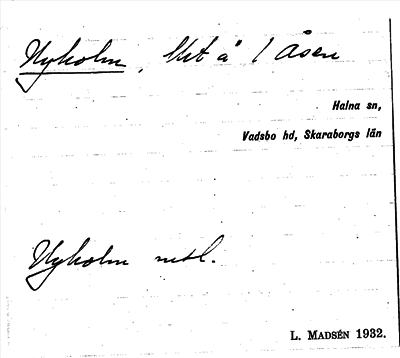 Nyholm, lht å 1 Åsen
Halna sn,
Vadsbo hd, Skaraborgs län
Nyholm
L. MADSÉN 1932.